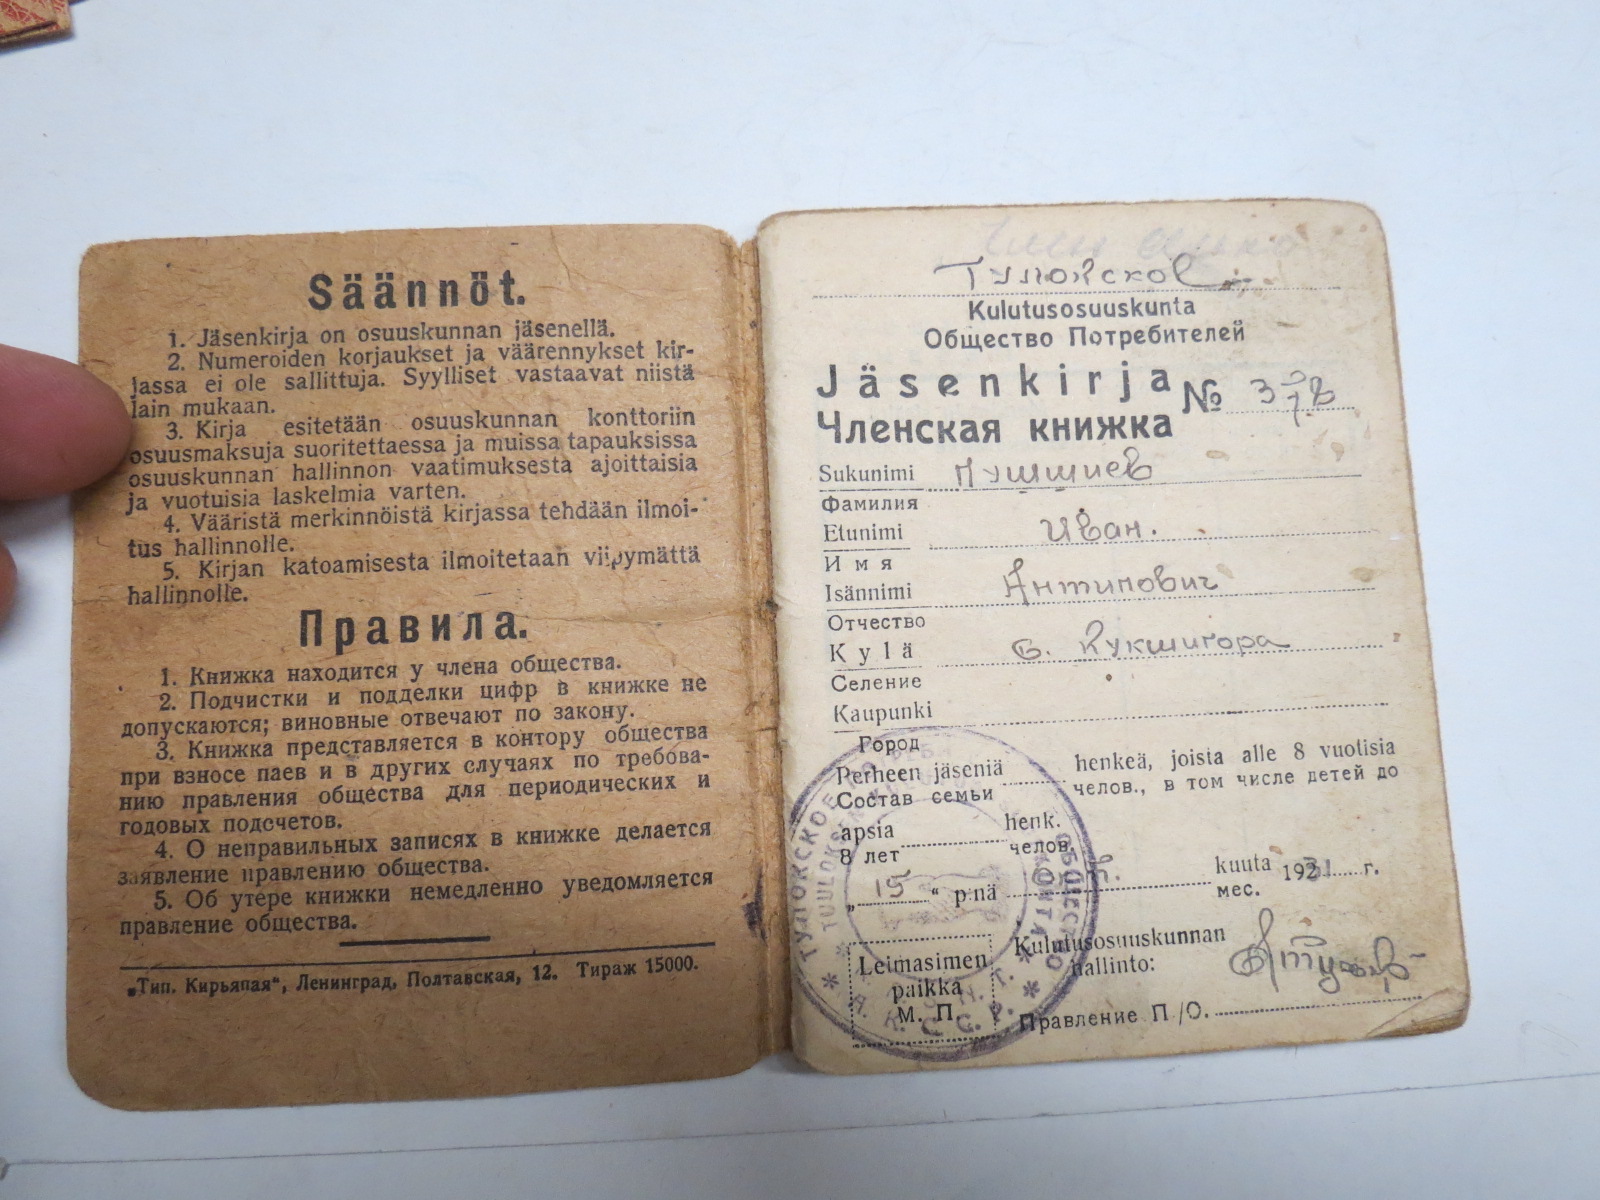 Säännöt.
1. Jäsenkirja on osuuskunnan jäsenellä.
2. Numeroiden korjaukset ja väärennykset kir-
jassa ei ole sallittuja. Syylliset vastaavat niistä
lain mukaan.
3. Kirja esitetään osuuskunnan konttoriin
osuusmaksuja suoritettaessa ja muissa tapauksissa
osuuskunnan hallinnon vaatimuksesta ajoittaisia
ja vuotuisia laskelmia varten.
4. Vääristä merkinnöistä kirjassa tehdään ilmoi-
tus hallinnolle.
5. Kirjan katoamisesta ilmoitetaan viipymättä
hallinnolle.
Правила.
1. Книжка находится у члена общества.
2. Подчистки и подделки цифр в книжке не
допускаются; виновные отвечают по закону.
3. Книжка представляется в контору общества
при взносе паев и в других случаях по требова-
нию правления общества для периодических и
годовых подсчетов.
4. О неправильных записях в книжке делается
заявление правлению общества.
5. Об утере книжки немедленно уведомляется
правление общества.
„Тип. Кирьяпая“, Ленинград, Полтавская, 12. Тираж 15000.
Тулокское
Kulutusosuuskunta
Общество Потребителей
Jäsenkirja
Членская книжка
№
Sukunimi
Фамилия
Etunimi Иван.
Имя
Isännimi Антипович
Отчество
Kylä с. Кукшигора
Селение
Kaupunki
Город
Perheen jäseniä henkeä, joista alle 8 vuotisia
Состав семьи челов., в том числе детей до
apsia henk.
8 лет челов.
„15“ p:nä kuuta 1931 г.
мес.
Leimasimen
paikka
М. П.
Kulutusosuuskunnan
hallinto:
Правление П/О.
ТУЛОКСКОЕ ОБЩЕСТВО
А. К. С. С. Р.